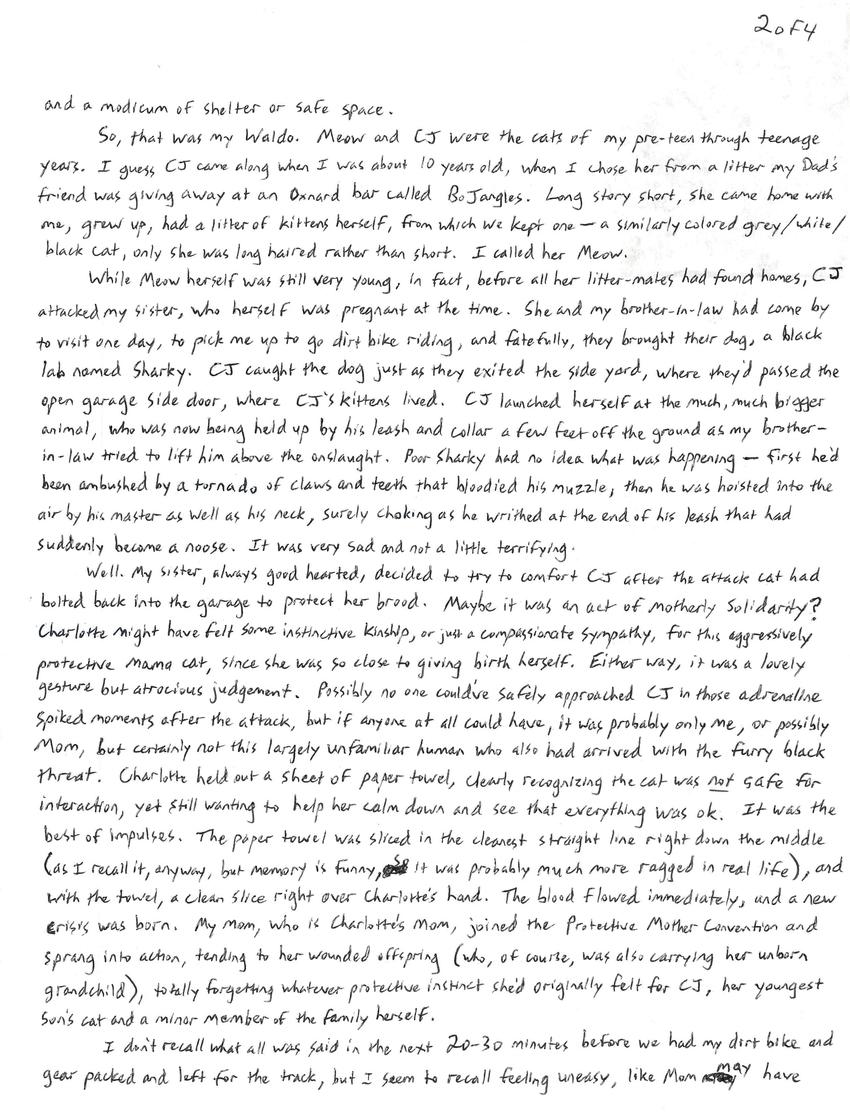 2 of 4
and a modicum of shelter or safe space.
So, that was my Waldo. Meow and CJ were the cats of my pre-teen through teenage
years. I guess CJ came along when I was about 10 years old, when I chose her from a litter my Dad's
friend was giving away at an Oxnard bar called BoJangles. Long story short, she came home with
me, grew up, had a litter of kittens herself, from which we kept one — a similarly colored grey/white/
black cat, only she was long haired rather than short. I called her Meow.
While Meow herself was still very young, in fact, before all her litter-mates had found homes, CJ
attacked my sister, who herself was pregnant at the time. She and my brother-in-law had come by
to visit one day, to pick me up to go dirt bike riding, and fatefully, they brought their dog, a black
lab named Sharky. CJ caught the dog just as they exited the side yard, where they'd passed the
open garage side door, where CJ's kittens lived. CJ launched herself at the much, much bigger
animal, who was now being held up by his leash and collar a few feet off the ground as my brother-
in-law tried to lift him above the onslaught. Poor Sharky had no idea what was happening — first he'd
been ambushed by a tornado of claws and teeth that bloodied his muzzle, then he was hoisted into the
air by his master as well as his neck, surely choking as he writhed at the end of his leash that had
suddenly become a noose. It was very sad and not a little terrifying.
Well. My sister, always good hearted, decided to try to comfort CJ after the attack cat had
bolted back into the garage to protect her brood. Maybe it was an act of motherly solidarity?
Charlotte might have felt some instinctive kinship, or just a compassionate sympathy, for this aggressively
protective mama cat, since she was so close to giving birth herself. Either way, it was a lovely
gesture but atrocious judgement. Possibly no one could've safely approached CJ in those adrenaline
spiked moments after the attack, but if anyone at all could have, it was probably only me, or possibly
Mom, but certainly not this largely unfamiliar human who also had arrived with the furry black
threat. Charlotte held out a sheet of paper towel, clearly recognizing the cat was not safe for
interaction, yet still wanting to help her calm down and see that everything was ok. It was the
best of impulses. The paper towel was sliced in the cleanest straight line right down the middle
(as I recall it, anyway, but memory is funny, so it was probably much more ragged in real life), and
with the towel, a clean slice right over Charlotte's hand. The blood flowed immediately, and a new
crisis was born. My mom, who is Charlotte's mom, joined the Protective Mother Convention and
sprang into action, tending to her wounded offspring (who, of course, was also carrying her unborn
grandchild), totally forgetting whatever protective instinct she'd originally felt for CJ, her youngest
son's cat and a minor member of the family herself.
I don't recall what all was said in the next 20-30 minutes before we had my dirt bike and
gear packed and left for the track, but I seem to recall feeling uneasy, like Mom may have